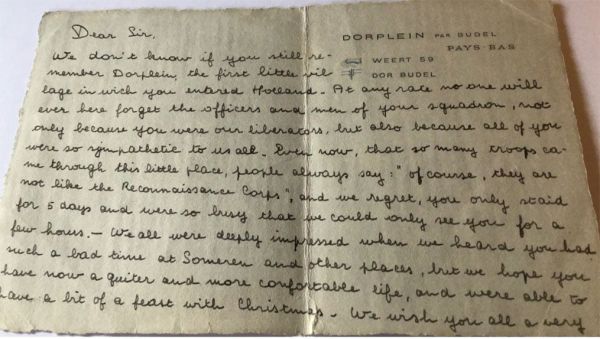 Dear Sir,
DORPLEIN PAR BUDEL
PAYS-BAS
WEERT 59
DOR BUDEL
We don't know if you still re-
member Dorplein, the first little vil
lage in wich you entered Holland. At any rate no one will
ever here forget the officers and men of your squadron, not
only because you were our liberators, but also because all of you
were so sympathetic to us all. Even now, that so many troops ca-
me through this little place, people always say: "of course, they are
not like the Reconnaissance Corps", and we regret, you only staid
for 5 days and were so busy that we could only see you for a
few hours. — We all were deeply impressed when we heard you had
such a bad time at Someren and other places, but we hope you
have now a quiter and more comfortable life, and were able to
have a bit of a feast with Christmas. We wish you all a very